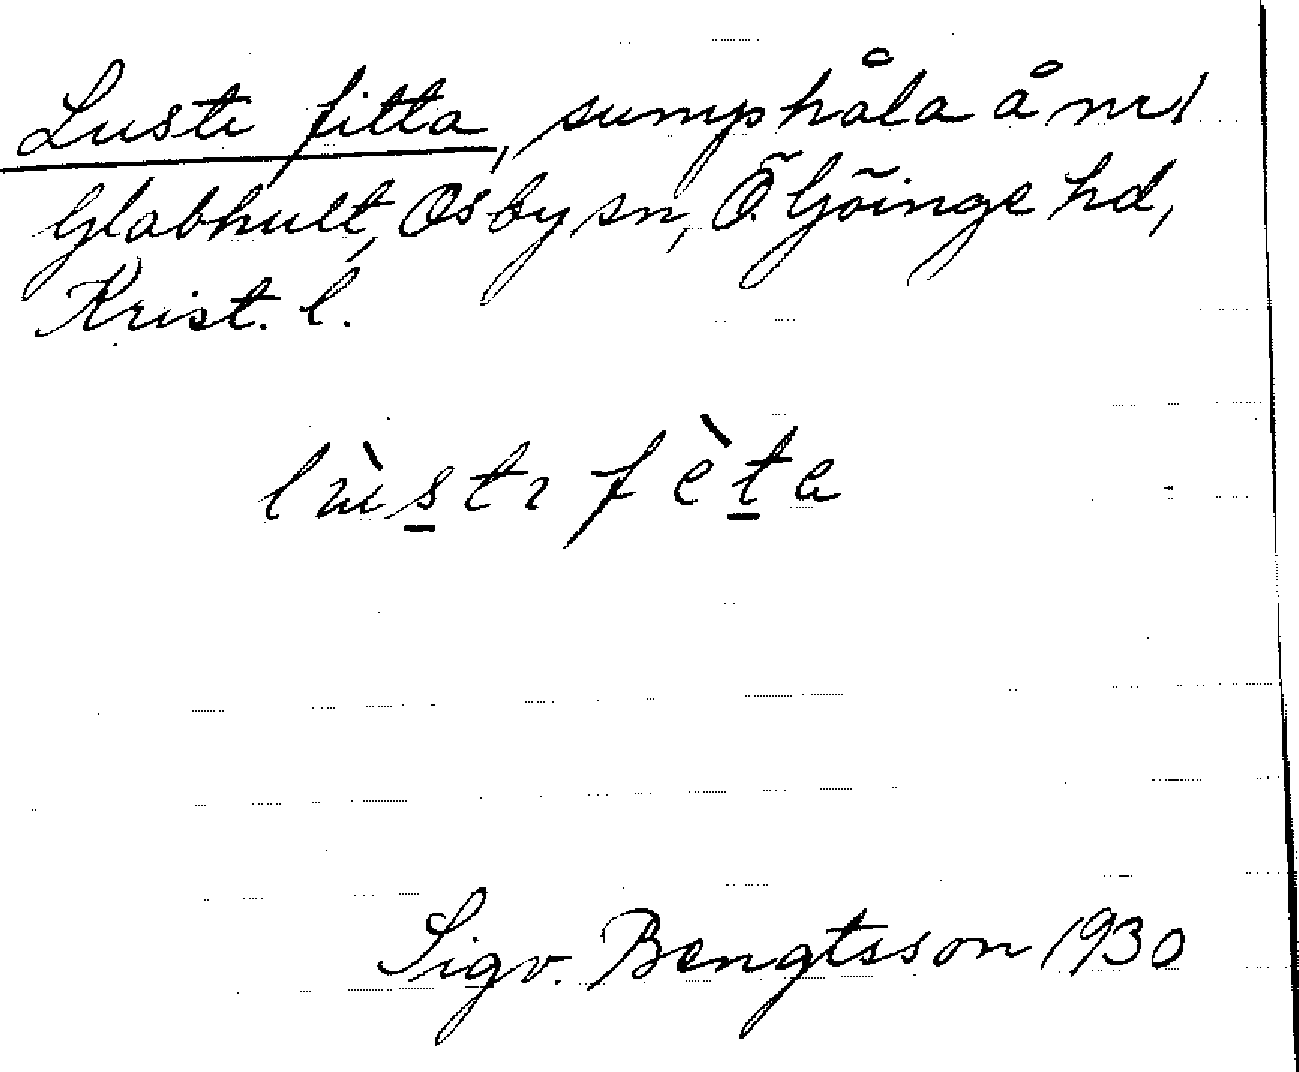 Luste fitta, sumphåla å nr 1
Glabhult, Osby sn, Ö. Göinge hd,
Krist. l.
lùstı fèta
Sigv. Bengtsson 1930